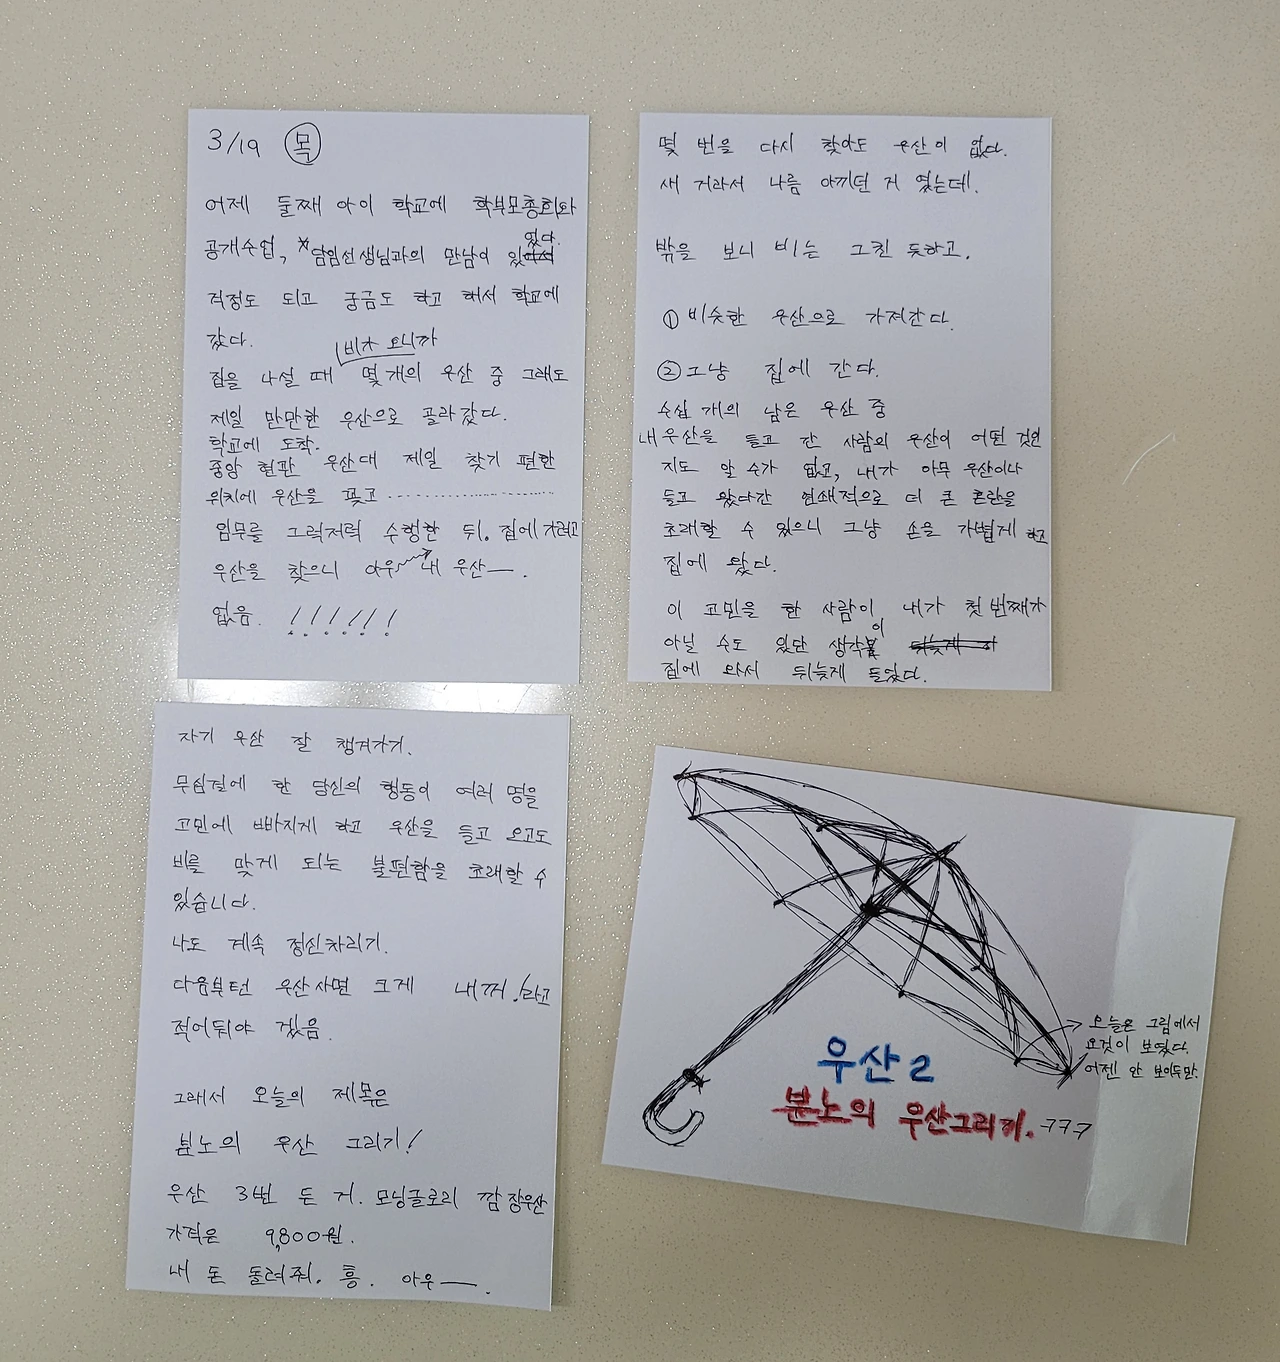 3/19 목
어제 둘째 아이 학교에 학부모총회와
공개수업, *담임선생님과의 만남이 있었다.
걱정도 되고 궁금도 하고 해서 학교에
갔다.
집을 나설 때 비가 오니까 몇 개의 우산 중 그래도
제일 만만한 우산으로 골라갔다.
학교에 도착.
중앙 현관 우산대 제일 찾기 편한
위치에 우산을 꽂고 ........................
임무를 그럭저럭 수행한 뒤. 집에 가려고
우산을 찾으니 아우~~ 내 우산—.
없음. !!!!!!
몇 번을 다시 찾아도 우산이 없다.
새 거라서 나름 아끼던 거 였는데.
밖을 보니 비는 그친 듯하고.
① 비슷한 우산으로 가져간다.
② 그냥 집에 간다.
수십 개의 남은 우산 중
내 우산을 들고 간 사람의 우산이 어떤 것인
지도 알 수가 없고, 내가 아무 우산이나
들고 왔다간 연쇄적으로 더 큰 혼란을
초래할 수 있으니 그냥 손을 가볍게 하고
집에 왔다.
이 고민을 한 사람이 내가 첫 번째가
아닐 수도 있단 생각이
집에 와서 뒤늦게 들었다.
자기 우산 잘 챙겨가기.
무심결에 한 당신의 행동이 여러 명을
고민에 빠지게 하고 우산을 들고 오고도
비를 맞게 되는 불편함을 초래할 수
있습니다.
나도 계속 정신차리기.
다음부턴 우산사면 크게 내꺼!라고
적어둬야 겠음.
그래서 오늘의 제목은
분노의 우산 그리기!
우산 3번 든 거. 모닝글로리 깜장우산
가격은 9,800원.
내 돈 돌려줘. 흥. 아우—.
오늘은 그림에서
요것이 보였다.
어젠 안 보이두만.
우산 2
분노의 우산그리기. ㅋㅋㅋ